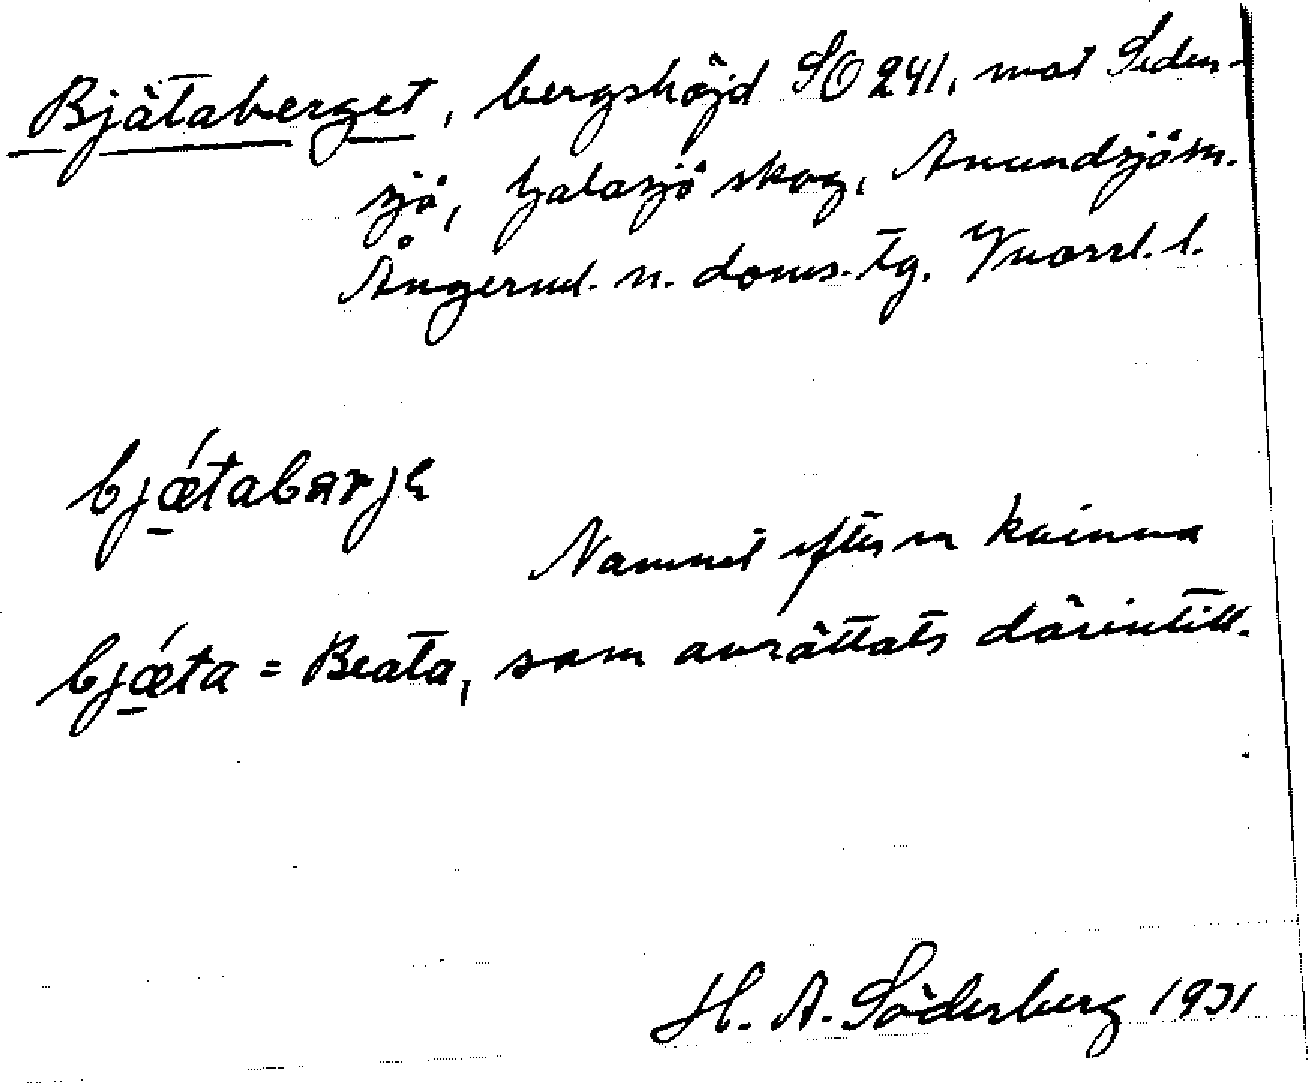 Bjätaberget, bergshöjd SO 241, mot Seden-
sjö, Galasjö skog, Anundsjö sn.
Ångerml. n. doms. tg. Vnorrl. l.
bjǽtabarje
Namnet efter en kvinna
bjǽta = Beata, som avrättats därintill.
H. A. Söderberg 1931